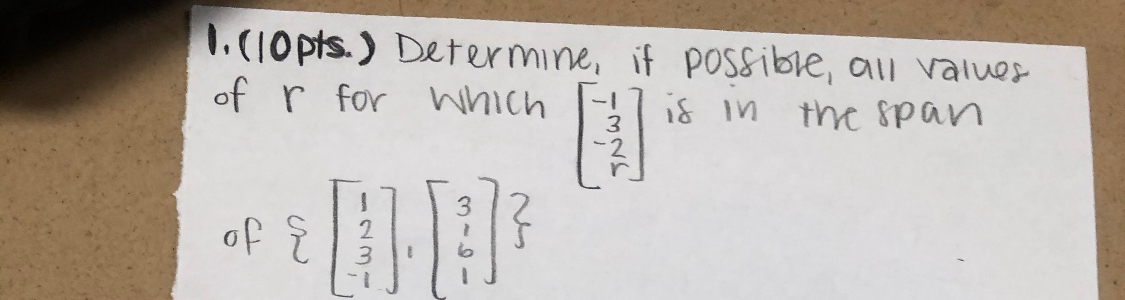 1. (10pts.) Determine, if possible, all values
of r for which [-1 3 -2 r] is in the span
of { [1 2 3 -1], [3 1 6 1] }